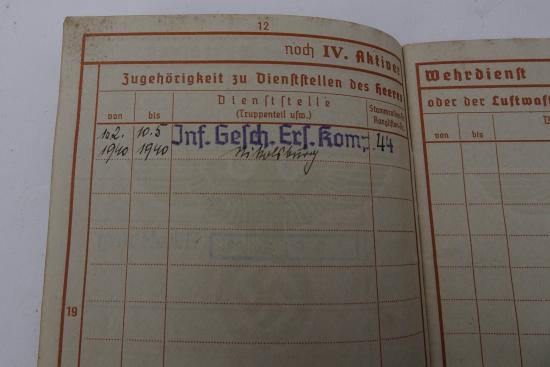 12
noch IV. Aktiver
Wehrdienst
Zugehörigkeit zu Dienststellen des Heeres
oder der Luftwaffe
19
von bis Dienststelle
(Truppenteil usw.)
von bis
10.2. 10.5 Inf. Gesch. Ers. Komp. 44
1940 1940 Nikolsburg